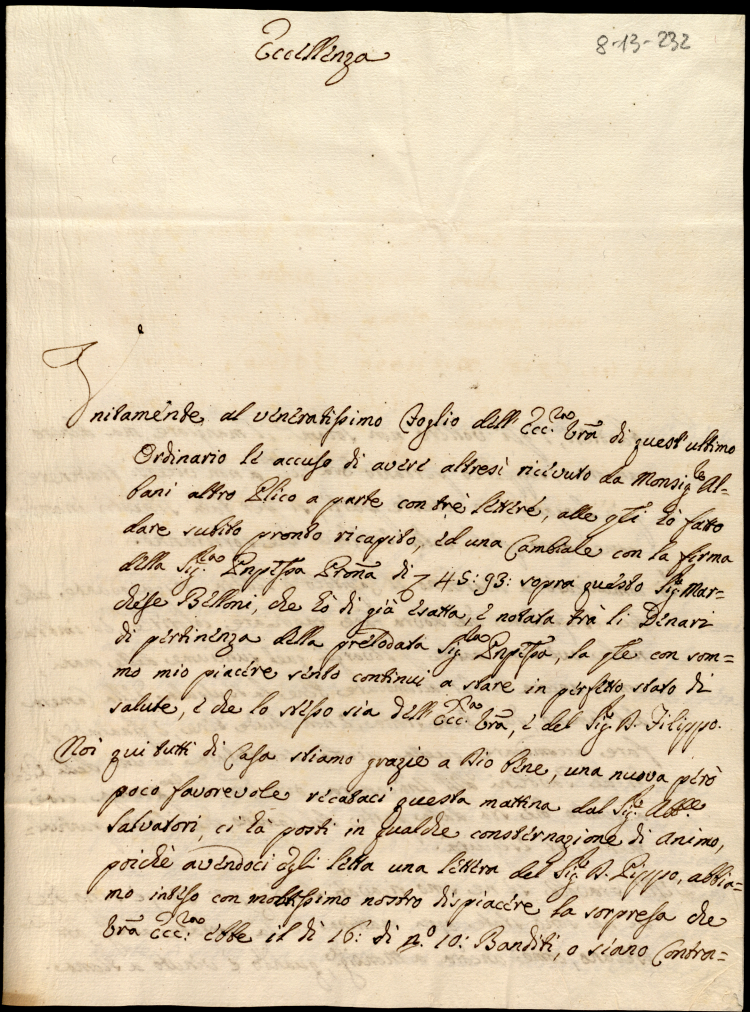 8-13-232
Eccellenza
Unitamente al veneratissimo Foglio dell'Ecc.za Vrã di quest'ultimo
Ordinario le accuso di avere altresì ricevuto da Monsig.re Al=
bani altro Plico a parte con trè lettere, alle qli hò fatto
dare subito pronto ricapito, ed una Cambiale con la firma
della Sig.ra Pnpessa Prona di 745:93: sopra questo Sig. Mar=
chese Belloni, che hò di già esatta, e notata trà li Denari
di pertinenza della prelodata Sig.ra Pnpessa, la qle con som=
mo mio piacere sento continui a stare in perfetto stato di
salute, e che lo stesso sia dell'Ecc.za Vrã, e del Sig. D. Filippo.
Noi qui tutti di Casa stiamo grazie a Dio bene, una nuova però
poco favorevole recataci questa mattina dal Sig. Abb.e
Salvatori, ci hà posti in qualche consternazione di animo,
poichè avendoci egli letta una lettera del Sig. D. Pippo, abbia=
mo inteso con moltissimo nostro dispiacere la sorpresa che
Vrã Ecc.za ebbe il dì 16: di n.o 10: Banditi, o siano Contra=